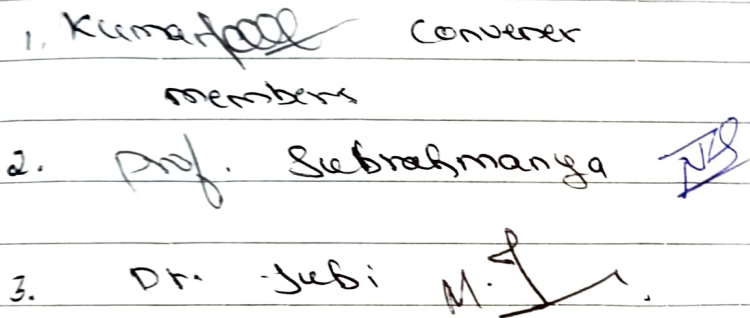 1. Kumar Convener
members
2. Prof. Subrahmanya
3. Dr. Jubi M.